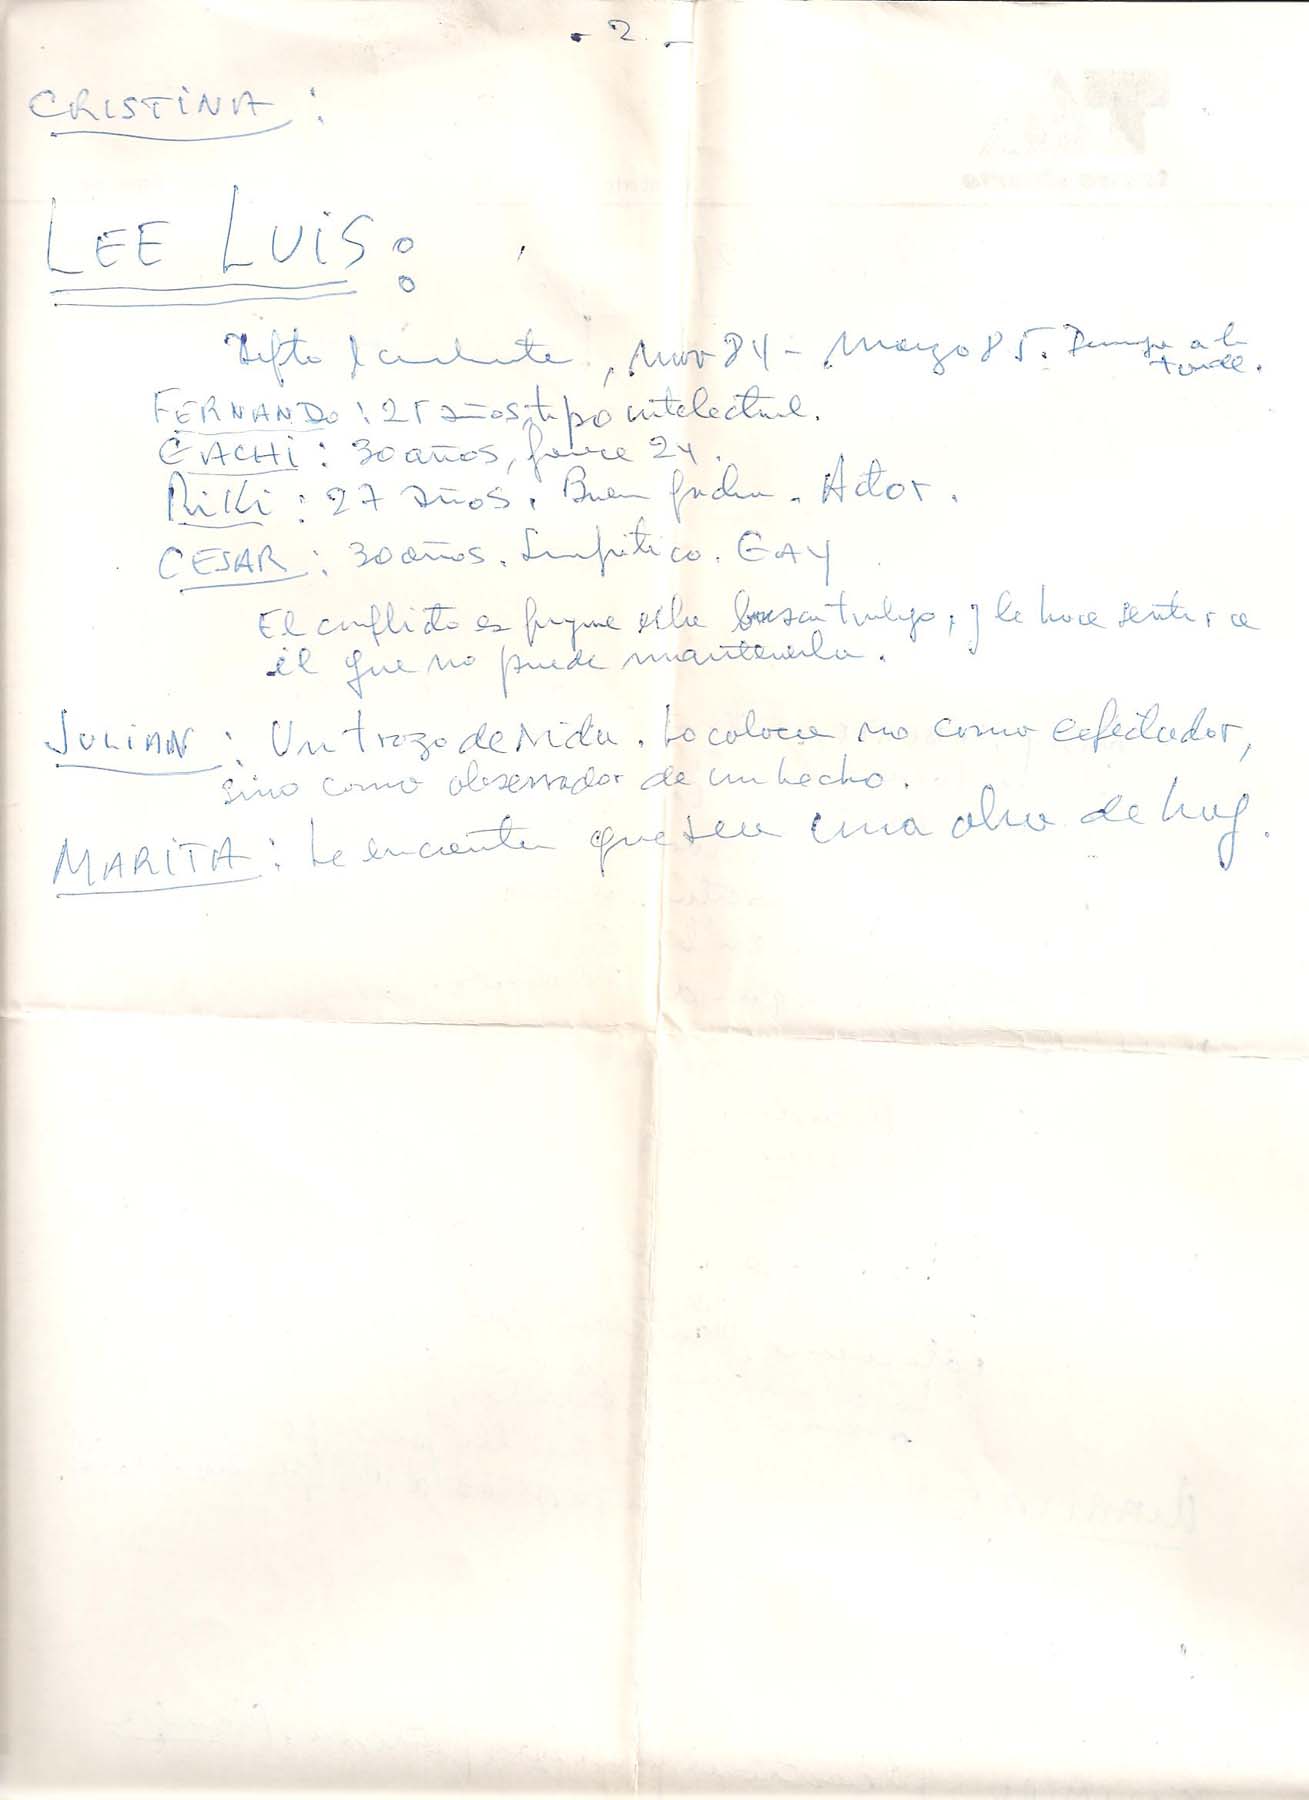 - 2 -
CRISTINA :
LEE LUIS :
Depto , Nov 84 - Marzo 85. Domingo a la
tarde.
FERNANDO : 25 años, tipo intelectual.
GACHI : 30 años, parece 24.
RIKI : 27 años. Buen . Actor.
CESAR : 30 años. Simpático. GAY
El conflicto es porque ella busca trabajo, y le hace sentir a
él que no puede mantenerla.
JULIAN : Un trozo de vida. Lo coloca no como espectador,
sino como observador de un hecho.
MARITA : Le encanta que sea una obra de hoy.